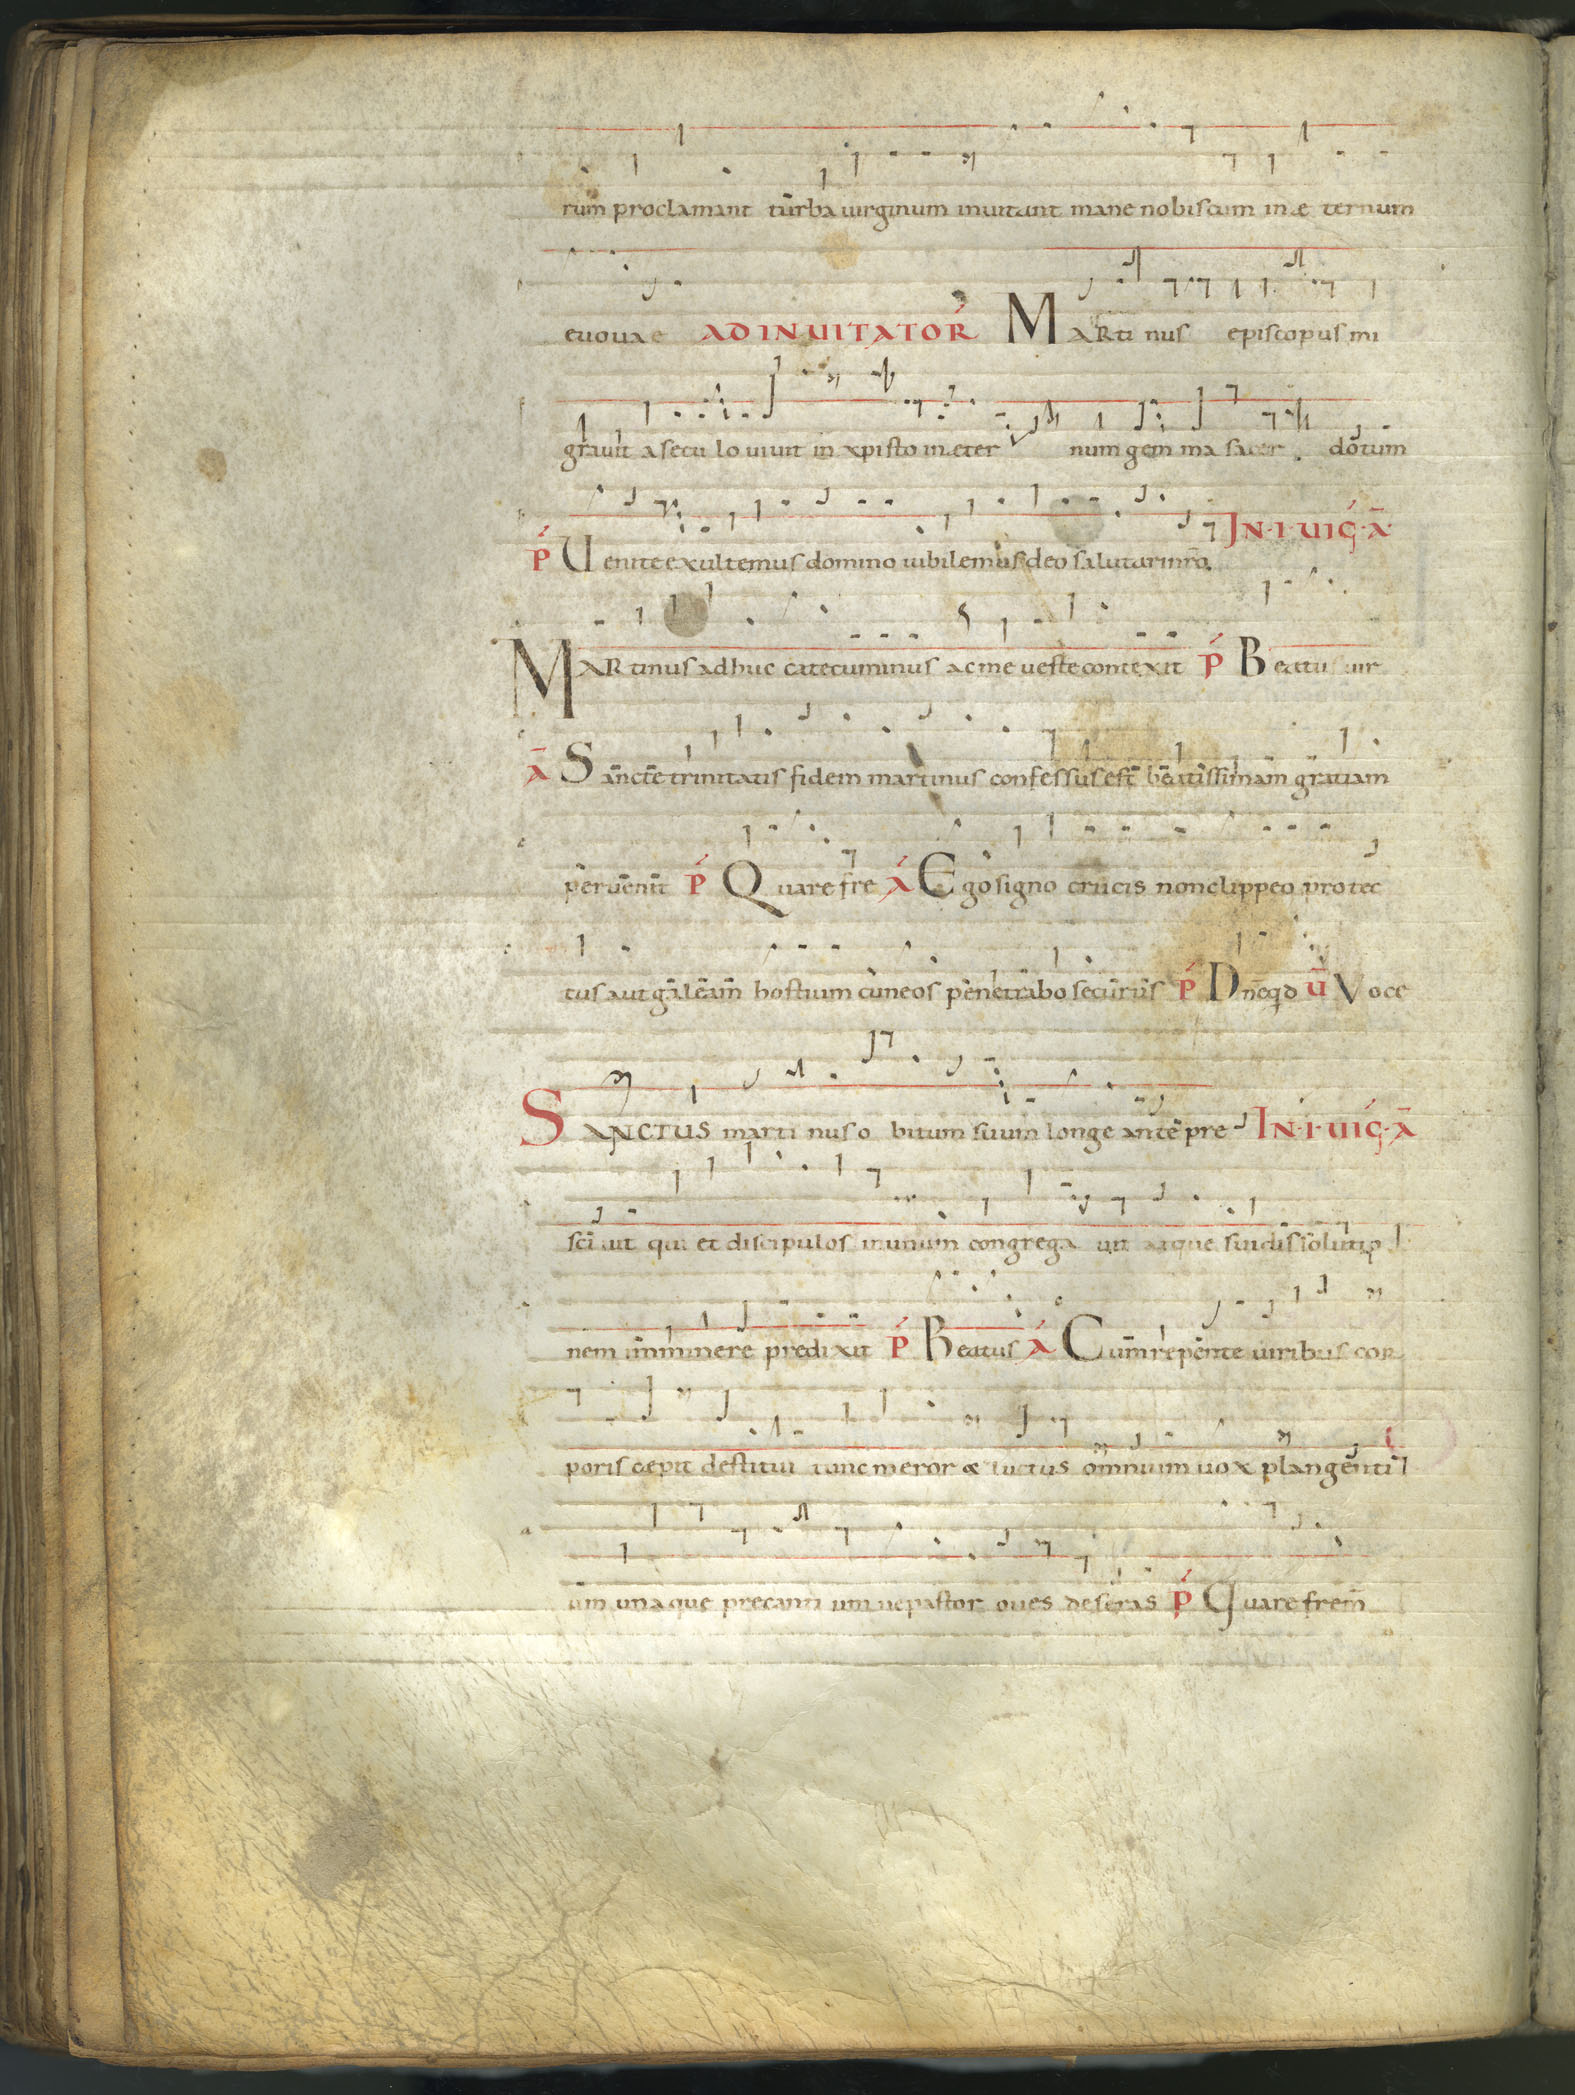 rum proclamant turba uirginum inuitant mane nobiscum in æ ternum
euouae AD INUITATOR MARti nus episcopus mi
grauit a secu lo uiuit in xpisto in æter num gem ma sacer dotum
P Uenite exultemus domino iubilemus deo salutari nrō. IN · I · UIG · Ā
MARtinus adhuc catecuminus ac me ueste contexit P Beatus uir
Ā Sancte trinitatis fidem martinus confessus est beatissimam gratiam
peruenit P Quare fre A Ego signo crucis non clippeo protec
tus aut galeam hostium cuneos penetrabo securus P Dnē qd Ū Voce
SANCTUS marti nus o bitum suum longe ante pre IN · I · UIG · Ā
sciuit qui et discipulos in unum congrega uit atque sui dissolutio
nem imminere predixit P Beatus A Cum repente uiribus cor
poris cepit destitui tunc meror & luctus omnium uox plangenti
um unaque precanti um ne pastor oues deseras P Quare frem̄